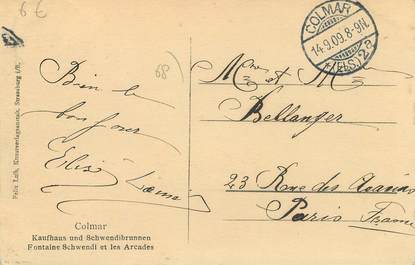 6 €
68
COLMAR
14.9.09.8-9N.
(ELS.) 2a
Bien le
bonjour
Elisé
Mme et M
Bellanger
23 Rue des
Paris France
Felix Luib, Kunstverlagsanstalt, Strassburg i/E.
Colmar
Kaufhaus und Schwendibrunnen
Fontaine Schwendi et les Arcades